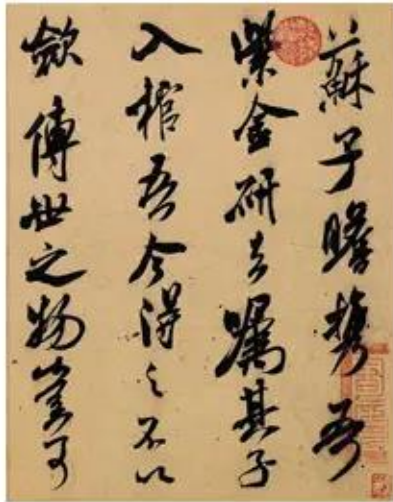 蘇子瞻携吾
紫金研去嘱其子
入棺吾今得之不以
斂傳世之物豈可